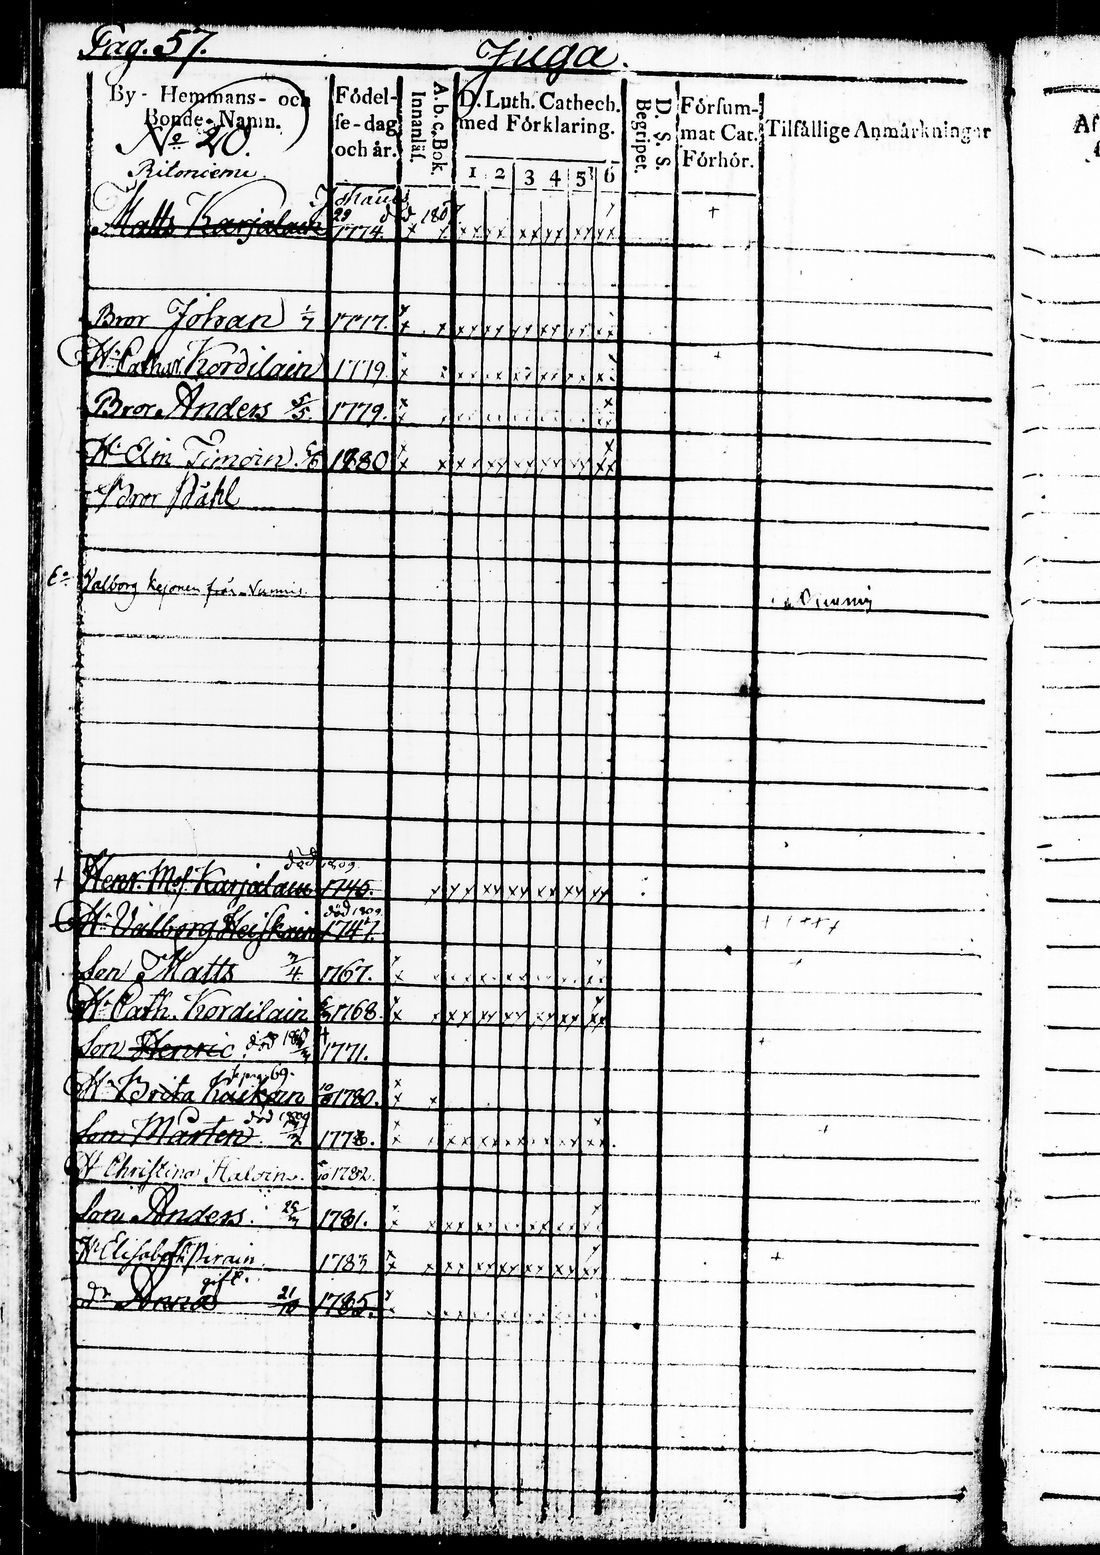 Pag. 57.
Juga.
By- Hemmans- och Bonde-Namn.
Födel-se-dag och år.
A.b.c. Bok. Innanläs.
D. Luth. Cathech. med Förklaring.
1 2 3 4 5 6
D. S. S. Begripet.
Försum-mat Cat. Förhör.
Tilfällige Anmärkningar
No 20.
Matts Karjalain 29 1774. död 1807
Bror Johan 1/7 1777.
H: Cathar. Kordilain 1779
Bror Anders 5/5 1779.
H: Elin Timoin 1780
Bror Påhl
Valborg Kejonen från
död 1809
+ Henr. M.s. Karjalain 1745.
död 1809
H: Valborg Heiskain 1747.
Son Matts 7/4 1767.
H: Cath. Kordilain 1768
Son Henric död 1771.
69.
H: Brita 10 1780.
Son Mårten död 1809 177
H: Christina 10 1782.
Son Anders. 25 1781.
H: Elisabeth Pirain 1783
gift.
dr Anna 21/10 1785.